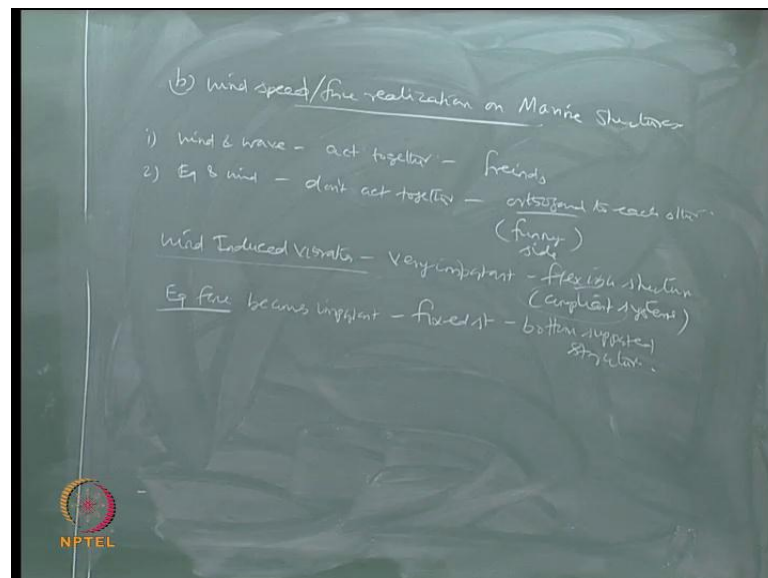 b) wind speed/force realization on Marine Structures
1) wind & wave - act together - freinds
2) Eq & wind - don't act together - orthogonal to each other
(funny side)
Wind Induced Vibration - very important - flexible structure
(compliant systems)
Eq force becomes important - fixed st - bottom supported
structure.
NPTEL